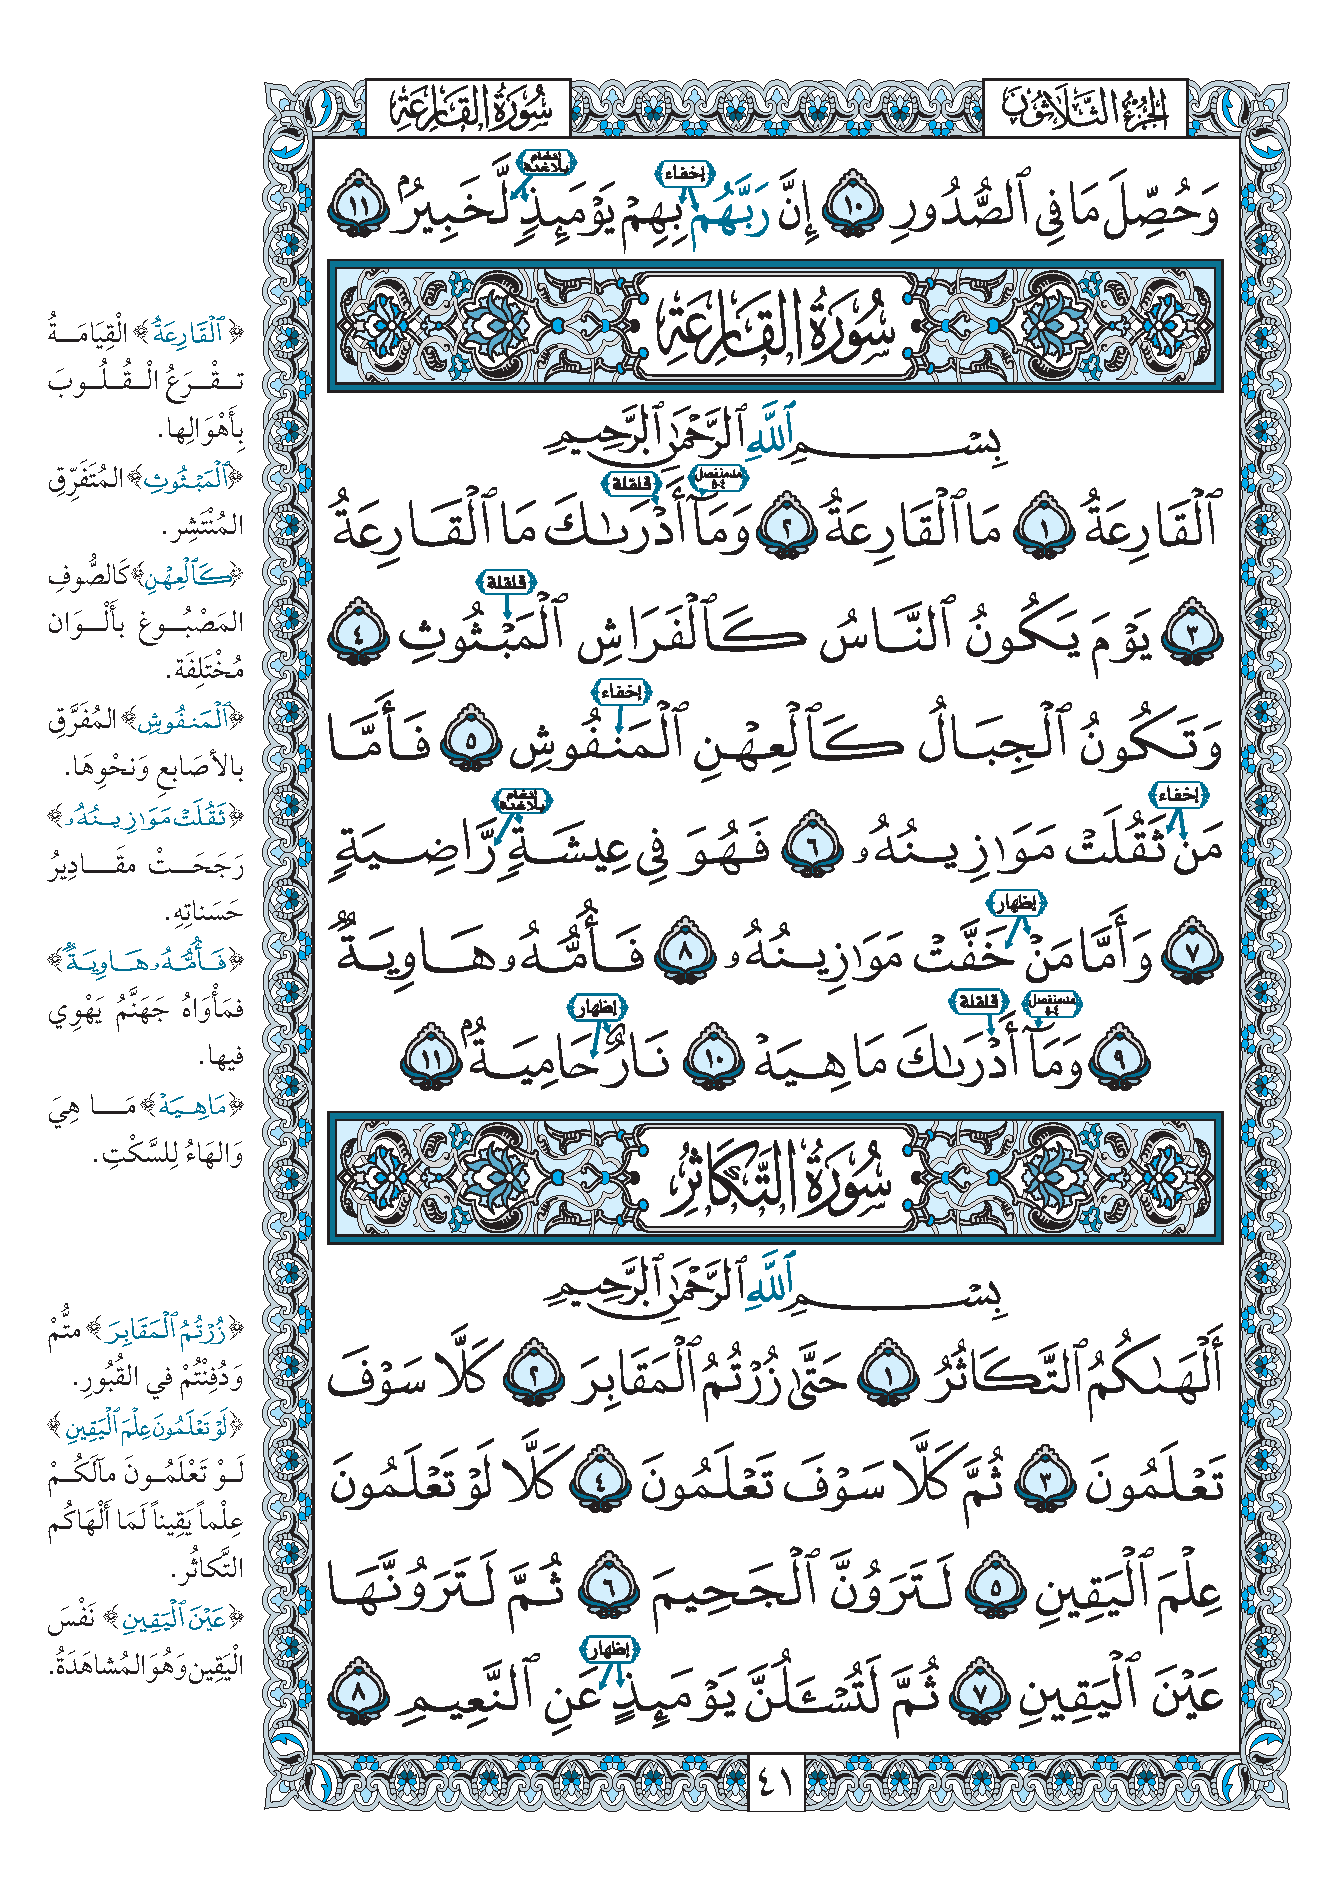 الجزء الثلاثون
سورة القارعة
إدغام بلاغنة
إخفاء
وَحُصِّلَ مَا فِي ٱلصُّدُورِ ١٠ إِنَّ رَبَّهُم بِهِمْ يَوْمَئِذٍ لَّخَبِيرٌۢ ١١
سُورَةُ القَارِعَةِ
بِسْمِ ٱللَّهِ ٱلرَّحْمَٰنِ ٱلرَّحِيمِ
مد منفصل ٤-٥
قلقلة
ٱلْقَارِعَةُ ١ مَا ٱلْقَارِعَةُ ٢ وَمَآ أَدْرَىٰكَ مَا ٱلْقَارِعَةُ
قلقلة
٣ يَوْمَ يَكُونُ ٱلنَّاسُ كَٱلْفَرَاشِ ٱلْمَبْثُوثِ ٤
إخفاء
وَتَكُونُ ٱلْجِبَالُ كَٱلْعِهْنِ ٱلْمَنفُوشِ ٥ فَأَمَّا
إخفاء
إدغام بلاغنة
مَن ثَقُلَتْ مَوَٰزِينُهُۥ ٦ فَهُوَ فِي عِيشَةٍ رَّاضِيَةٍ
إظهار
٧ وَأَمَّا مَنْ خَفَّتْ مَوَٰزِينُهُۥ ٨ فَأُمُّهُۥ هَاوِيَةٌ
مد منفصل ٤-٥
قلقلة
إظهار
٩ وَمَآ أَدْرَىٰكَ مَا هِيَهْ ١٠ نَارٌ حَامِيَةٌۢ ١١
سُورَةُ التَّكَاثُرِ
بِسْمِ ٱللَّهِ ٱلرَّحْمَٰنِ ٱلرَّحِيمِ
أَلْهَىٰكُمُ ٱلتَّكَاثُرُ ١ حَتَّىٰ زُرْتُمُ ٱلْمَقَابِرَ ٢ كَلَّا سَوْفَ
تَعْلَمُونَ ٣ ثُمَّ كَلَّا سَوْفَ تَعْلَمُونَ ٤ كَلَّا لَوْ تَعْلَمُونَ
عِلْمَ ٱلْيَقِينِ ٥ لَتَرَوُنَّ ٱلْجَحِيمَ ٦ ثُمَّ لَتَرَوُنَّهَا
إظهار
عَيْنَ ٱلْيَقِينِ ٧ ثُمَّ لَتُسْـَٔلُنَّ يَوْمَئِذٍ عَنِ ٱلنَّعِيمِ ٨
﴿ٱلْقَارِعَةُ﴾ الْقِيَامَةُ
تَقْرَعُ الْقُلُوبَ
بِأَهْوَالِها.
﴿ٱلْمَبْثُوثِ﴾ المُتَفَرِّقِ
المُنْتَشِرِ.
﴿كَٱلْعِهْنِ﴾ كَالصُّوفِ
المَصْبُوغِ بأَلْوَانٍ
مُخْتَلِفَة.
﴿ٱلْمَنفُوشِ﴾ المُفَرَّقِ
بالأَصَابِعِ وَنحْوِهَا.
﴿ثَقُلَتْ مَوَٰزِينُهُۥ﴾
رَجَحَتْ مقَادِيرُ
حَسَناتِهِ.
﴿فَأُمُّهُۥ هَاوِيَةٌ﴾
فمَأْوَاهُ جَهَنَّمُ يَهْوِي
فيها.
﴿مَا هِيَهْ﴾ مَا هِيَ
وَالهَاءُ لِلسَّكْتِ.
﴿زُرْتُمُ ٱلْمَقَابِرَ﴾ متُّمْ
وَدُفِنْتُمْ في القُبُورِ.
﴿لَوْ تَعْلَمُونَ عِلْمَ ٱلْيَقِينِ﴾
لَوْ تَعْلَمُونَ مآلَكُمْ
عِلْماً يَقِيناً لَمَا أَلْهَاكُم
التَّكاثُر.
﴿عَيْنَ ٱلْيَقِينِ﴾ نَفْسَ
الْيَقِين وَهُوَ المُشاهَدَةُ.
٤١